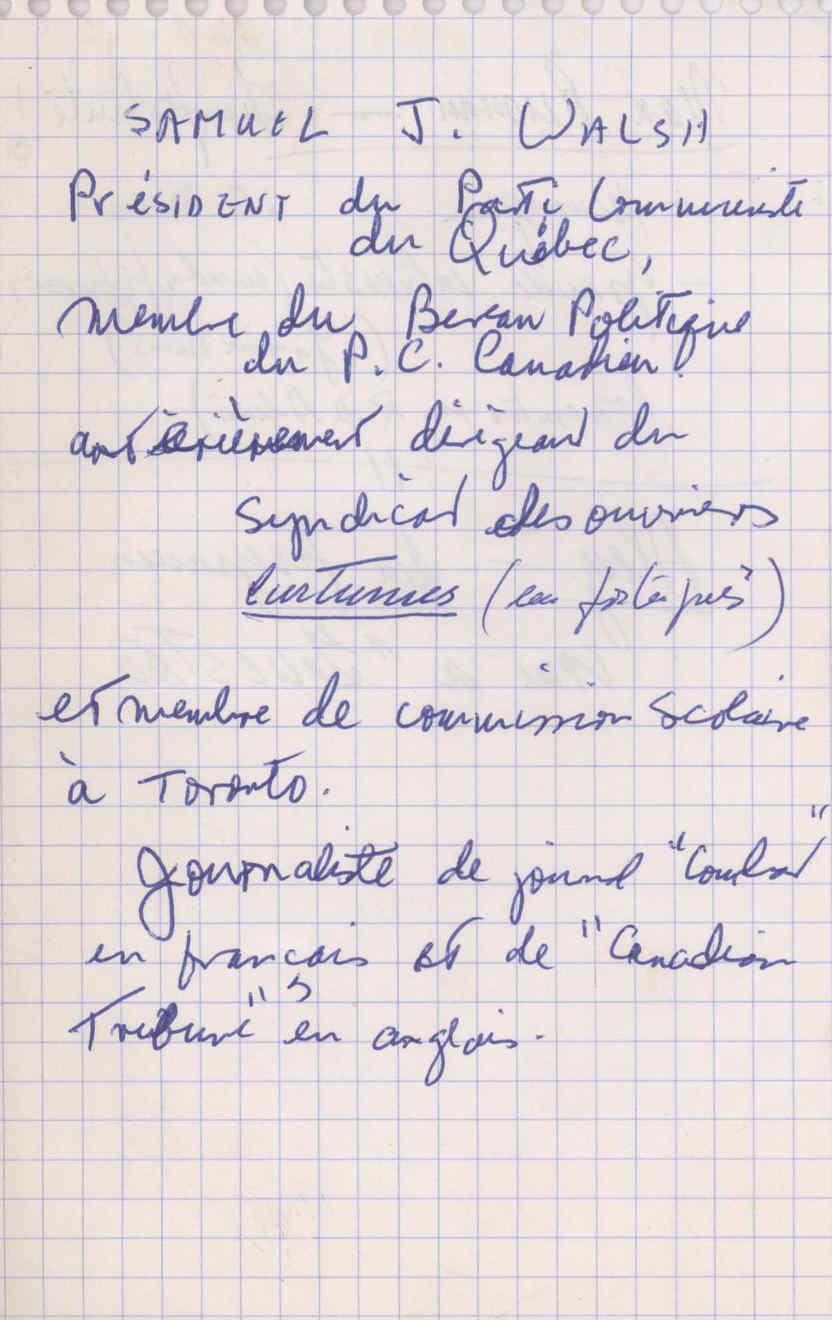 SAMUEL J. WALSH
PréSIDENT du Parti Communiste
du Québec,
membre du Bureau Politique
du P.C. Canadien.
antérièrement dirigeant du
Syndicat des ouvriers
(
)
et membre de commission Scolaire
à Toronto.
Journaliste de journal "Combat"
en français et de "Canadian
Tribune" en anglais.